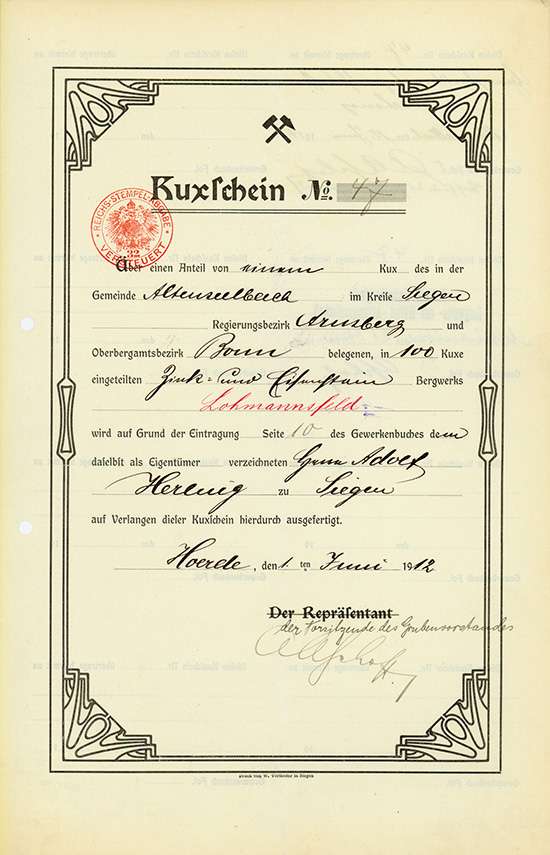 Kuxſchein No. 47
REICHS-STEMPELABGABE
32
VERSTEUERT
Über einen Anteil von einem Kux des in der
Gemeinde Altenseelbach im Kreiſe Siegen
Regierungsbezirk Arnsberg und
Oberbergamtsbezirk Bonn belegenen, in 100 Kuxe
eingeteilten Zink- und Eisenstein Bergwerks
Lohmannsfeld
wird auf Grund der Eintragung Seite 10 des Gewerkenbuches dem
daſelbſt als Eigentümer verzeichneten Herrn Adolf
zu Siegen
auf Verlangen dieſer Kuxſchein hierdurch ausgefertigt.
Hoerde, den 1. ten Juni 1912
Der Repräſentant
der Vorsitzende des Grubenvorstandes
Druck von W. Vorländer in Siegen